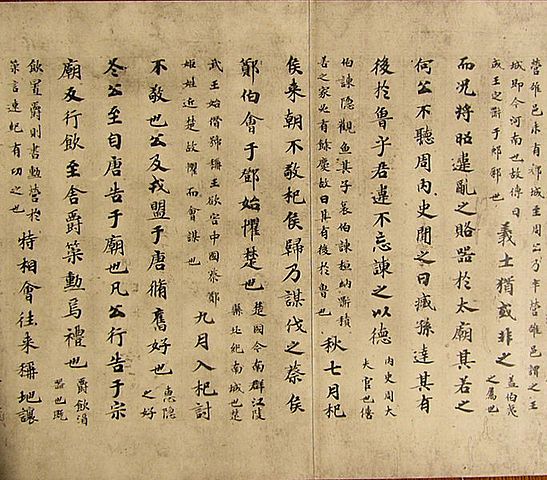 營雒邑未有郟城至周公乃卒營雒邑謂之王
城即今河南也故傳曰
成王定鼎于郟鄏也
義士猶或非之
盖伯夷
之属也
而況將昭違亂之賂器於太廟其若之
何公不聽周內史聞之曰臧孫達其有
後於魯乎君違不忘諫之以德
內史周大
夫官也僖
伯諫隠觀魚其子哀伯諫桓納鼎積
善之家必有餘慶故曰其有後於魯也
秋七月杞
侯来朝不敬杞侯歸乃謀伐之蔡侯
鄭伯會于鄧始懼楚也
楚國今南群江陵
縣北紀南城也楚
武王始僣號稱王欲害中國蔡鄭
姬姓近楚故懼而會謀也
九月入杞討
不敬也公及戎盟于唐脩舊好也
惠隠
之好
冬公至自唐告于廟也凡公行告于宗
廟反行飲至舍爵策勳焉禮也
爵飲酒
器也既
飲置爵則書勲勞於
策言速紀有功之也
特相會往来稱地讓